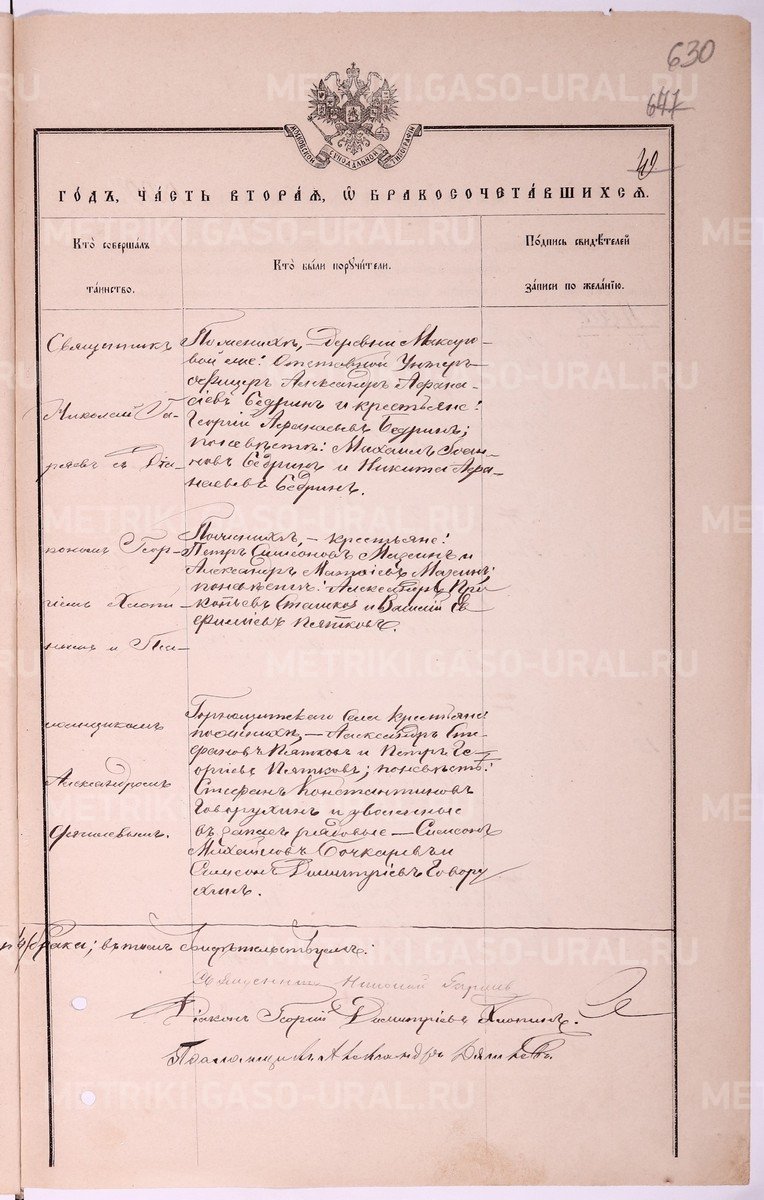 630
647
40
МОСКОВСКОЙ СѴНОДАЛЬНОЙ ТИПОГРАФІИ
ГОДЪ, ЧАСТЬ ВТОРАЯ, Ѽ БРАКОСОЧЕТАВШИХСЯ.
Кто совершалъ
таинство.
Кто были поручители.
Подпись свидѣтелей
записи по желанію.
Священникъ
Николай
съ Діа-
кономъ Геор-
гіемъ Хлопи-
нымъ и Пса-
ломщикомъ
Александромъ
По женихѣ, – деревни Макаро-
вой Отставной Унтеръ-
офицеръ Александръ Афана-
сіевъ Бедринъ и крестьяне:
Георгій Афанасьевъ Бедринъ;
по невѣстѣ: Михаилъ Іоан-
новъ Бедринъ и Никита Афа-
насьевъ Бедринъ.
По женихѣ, – крестьяне:
Петръ Симеоновъ Мазеинъ и
Александръ Матѳіевъ Мазеинъ;
по невѣстѣ: Александръ Про-
копьевъ и Василій Ев-
фиміевъ Пятковъ.
Горнощитскаго Села крестьяне:
по женихѣ, – Александръ Сте-
фановъ Пятковъ и Петръ Ге-
оргіевъ Пятковъ; по невѣстѣ:
Стефанъ Константиновъ
Говорухинъ и уволенные
въ запасъ рядовые – Симеонъ
Михайловъ Бочкаревъ и
Симеонъ Димитріевъ Говору-
хинъ.
брака; въ томъ свидѣтельствуемъ:
Священникъ Николай
Діаконъ Георгій Димитріевъ Хлопинъ.
Псаломщикъ Александръ
METRIKI.GASO-URAL.RU